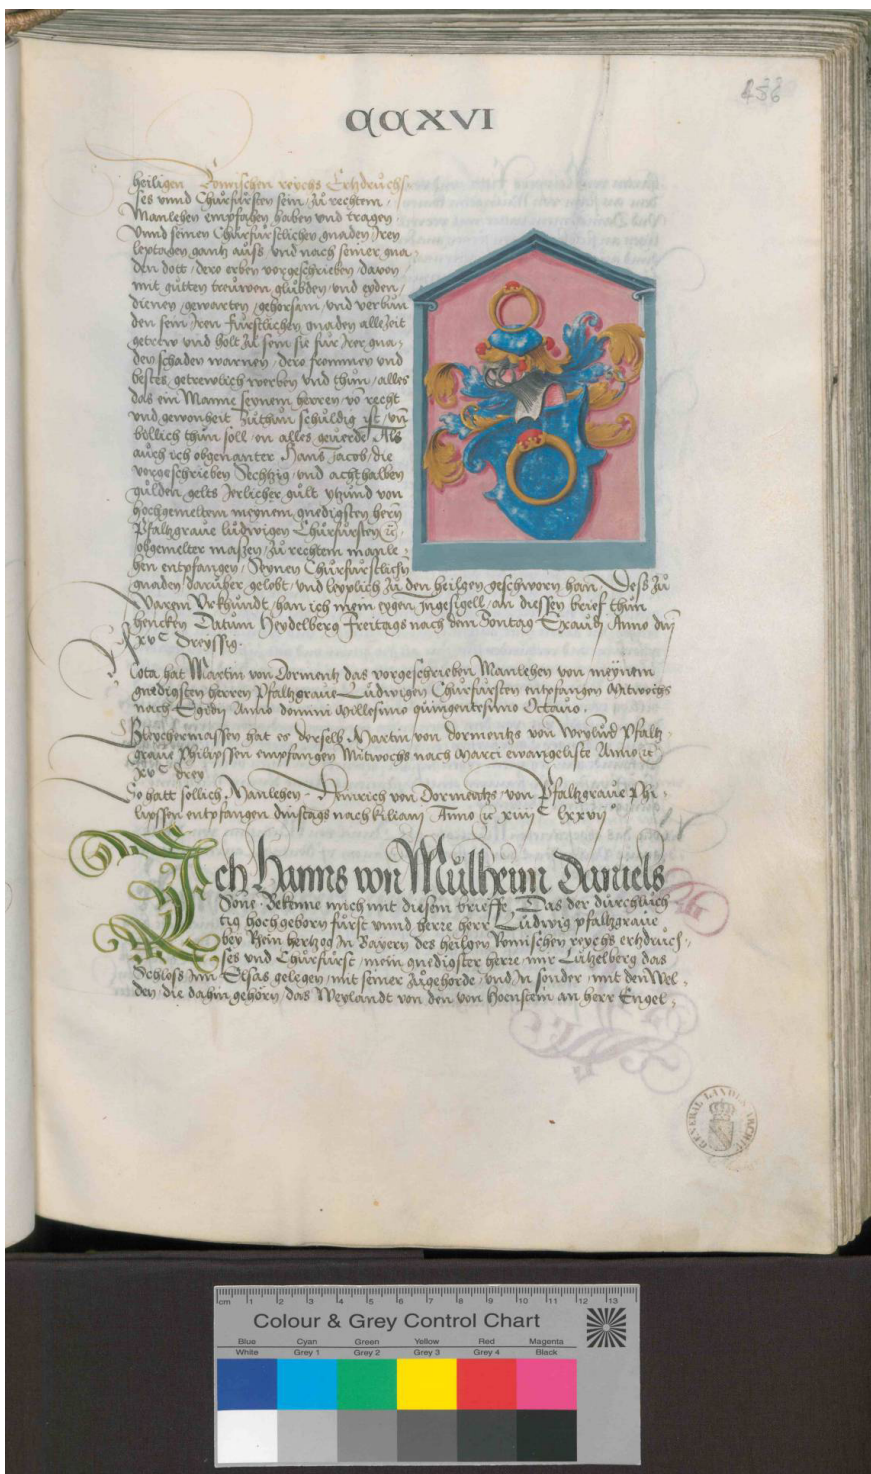 CCXVI
436
heiligen Romischen reychs Ertzdruchs/
ses vnnd Chůrfůrsten sein / zů rechtem /
Manlehen empfahen haben vnd tragen
Vnnd seinen Chůrfůrstlichen gnaden Iren
leptagen gantz auss vnd nach seiner gna
den dott / dero erben vorgeschrieben / davon /
mit gůtten treuwen glůbden / vnd eyden /
dienen / gewarten / gehorsam / vnd verbůn
den sein / Iren fůrstlichen gnaden alle Zeit
getrew vnd holt zů sein sie fůr Irer gna /
den schaden warnen / dero frommen vnd
bestes getrewlich werben vnd thůn / alles
das ein Manne seynem herren / vō recht
vnd gewonheit Zůthůn schůldig ist / vn̄
billich thůn soll / on alles geuerde. Als
auch ich obgenanter Hans Jacob / die
vorgeschrieben Sechtzig / vnd achthalben
gůlden gelts Jerlicher gůlt ytzund von
hochgemeltem meynem gnedigsten hern
Pfaltzgraue lůdwigen Chůrfůrsten ꝛc
obgemelter massen / zů rechtem manle /
hen entpfangen / Seynen Chůrfůrstlichn
gnaden darůber gelobt / vnd leyplich zů den heilgen geschworn han / Dess zů
Warem Vrkhůndt / han ich mein eygen Ingesigell / an diessen brief thůn
hencken Datum Heydelberg Freitags nach dem Sontag Exaudi Anno dnī
xvᶜ Dreyssig.
Nota hat Martin von Dormentz das vorgeschrieben Manlehen von meynem
gnedigsten herren Pfaltzgraue Lůdwigen Chůrfůrsten entpfangen Mitwochs
nach Egidij Anno domini Millesimo quingentesimo Octauo.
Gleychermassen hat es derselb Martin von dormentz von Weylūd Pfaltz
graue Philipssen empfangen Mitwochs nach Marci ewangeliste Anno ꝛc
xvᶜ drey
So hatt sollich Manlehen Heinrich von Dormentzs von Pfaltzgraue Phi-
lipssen entpfangen dinstags nach kiliani Anno ꝛc xiiijᶜ lxxvij°
Ich Hanns von Můlheim Daniels
Sone Bekenne mich mit diesem brieffe, Das der důrchlůch
tig hochgeborn fůrst vnnd herre herr Lůdwig pfaltzgraue
bey Rein hertzog In Bayern des heilgen Romischen reychs ertzdrůch-
ses vnd Chůrfůrst / mein gnedigster herre mir Lůtzelberg das
Schloss im Elsas gelegen / mit seiner zůgehorde / vnd In sonder / mit den Wel-
den / die dahin gehörn / das Weylandt von den von Hoenstein an herr Engel-
GENERAL LANDES ARCHIV
cm 1 2 3 4 5 6 7 8 9 10 11 12 13
Colour & Grey Control Chart
Blue Cyan Green Yellow Red Magenta
White Grey 1 Grey 2 Grey 3 Grey 4 Black